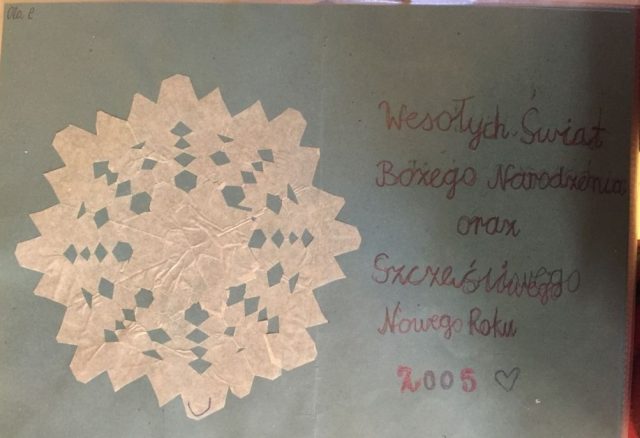 Ola C
Wesołych Świąt
Bożego Narodzenia
oraz
Szczęśliwego
Nowego Roku
2005 ♡